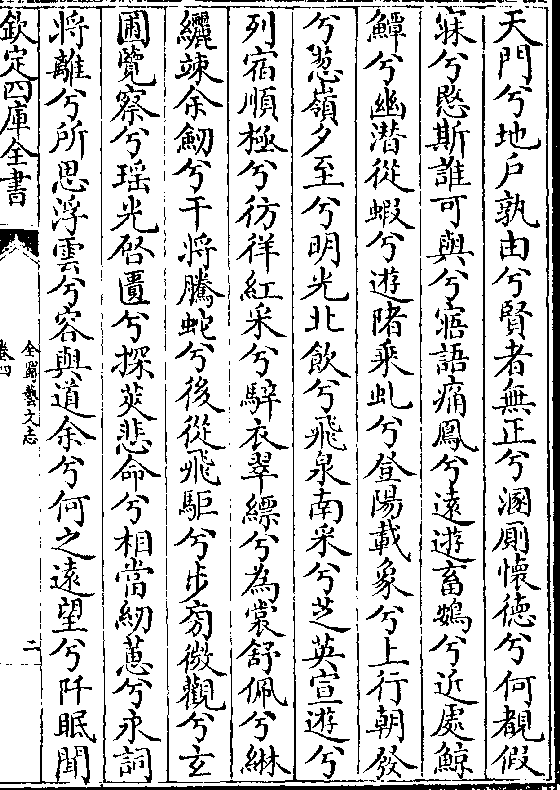 天門兮地戶孰由兮賢者無正兮溷厠懐徳兮何覩假
寐兮愍斯誰可與兮寤語痛鳳兮遠遊畜鴳兮近處鯨
鱓兮幽潜從蝦兮遊陼乘虬兮登陽載象兮上行朝發
兮葱嶺夕至兮明光北飲兮飛泉南采兮芝英宣遊兮
列宿順極兮彷徉紅采兮騂衣翠縹兮為裳舒佩兮綝
纚竦余釼兮干將騰蛇兮後從飛駏兮步旁微觀兮玄
圃覽察兮瑶光啓匱兮探莢悲命兮相當紉蕙兮永詞
將離兮所思浮雲兮容與道余兮何之遠望兮阡眠聞
欽定四庫全書
全蜀藝文志
卷四
二